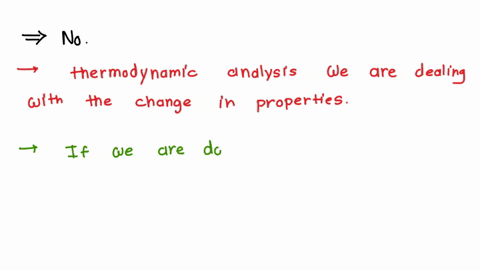 ⇒ No.
→ thermodynamic analysis we are dealing
with the change in properties.
→ If we are do